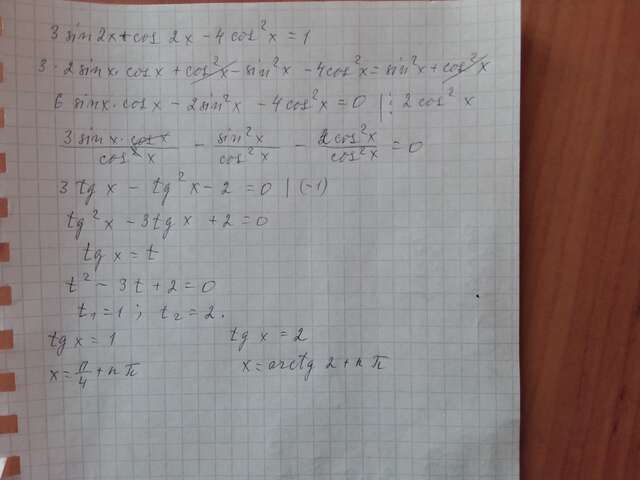 3 sin 2x + cos 2x - 4 cos²x = 1
3 · 2 sin x · cos x + cos²x - sin²x - 4 cos²x = sin²x + cos²x
6 sin x · cos x - 2 sin²x - 4 cos²x = 0 | : 2 cos²x
3 sin x · cos x / cos²x - sin²x / cos²x - 2 cos²x / cos²x = 0
3 tg x - tg²x - 2 = 0 | (-1)
tg²x - 3 tg x + 2 = 0
tg x = t
t² - 3t + 2 = 0
t₁ = 1 ; t₂ = 2.
tg x = 1 tg x = 2
x = π/4 + n π x = arctg 2 + n π